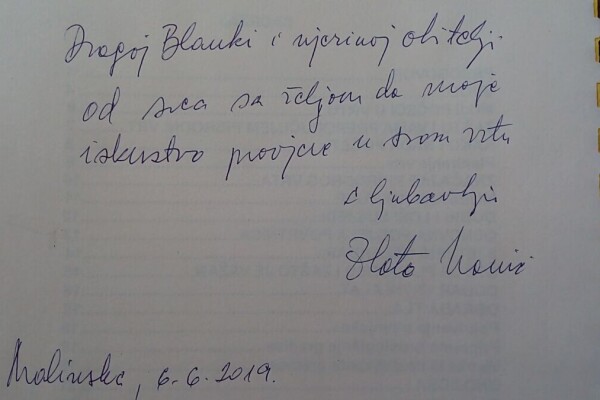 Dragoj Blanki i njezinoj obitelji
od srca sa željom da moje
iskustvo provjere u svom vrtu
s ljubavlju
Zlata
Malinska, 6.6.2019.